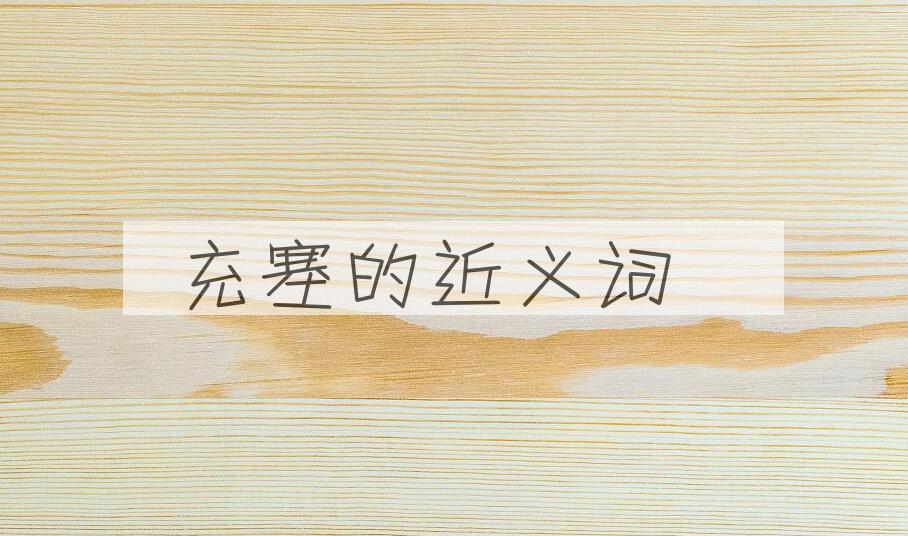 充塞的近义词